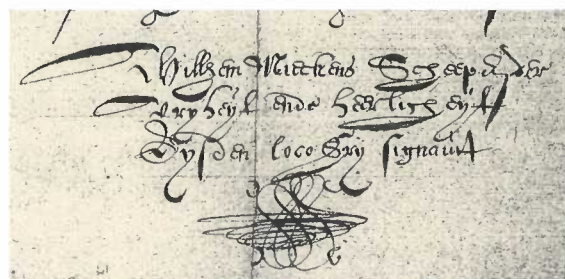 Willem Mieckens Scheepen der
vryheyt ende heerlicheyt
Eysden loco Sry signavit